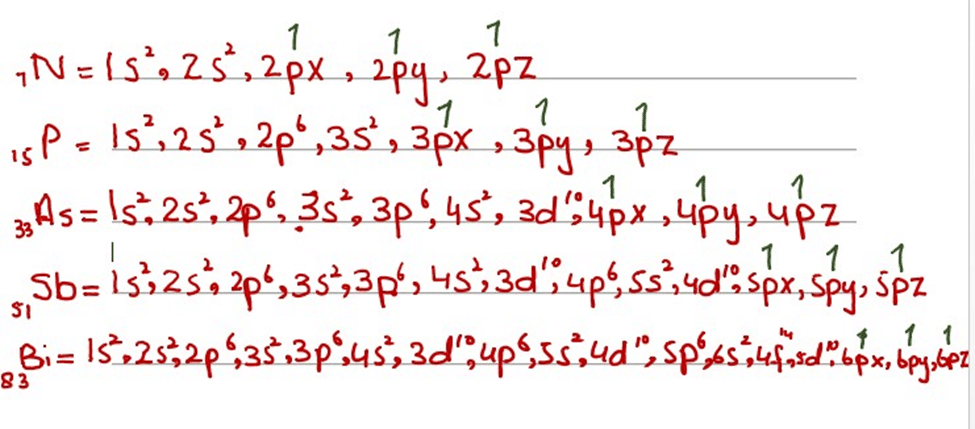 ₇N = 1s², 2s², 2px¹, 2py¹, 2pz¹
₁₅P = 1s², 2s², 2p⁶, 3s², 3px¹, 3py¹, 3pz¹
₃₃As = 1s², 2s², 2p⁶, 3s², 3p⁶, 4s², 3d¹⁰, 4px¹, 4py¹, 4pz¹
₅₁Sb = 1s², 2s², 2p⁶, 3s², 3p⁶, 4s², 3d¹⁰, 4p⁶, 5s², 4d¹⁰, 5px¹, 5py¹, 5pz¹
₈₃Bi = 1s², 2s², 2p⁶, 3s², 3p⁶, 4s², 3d¹⁰, 4p⁶, 5s², 4d¹⁰, 5p⁶, 6s², 4f¹⁴, 5d¹⁰, 6px¹, 6py¹, 6pz¹